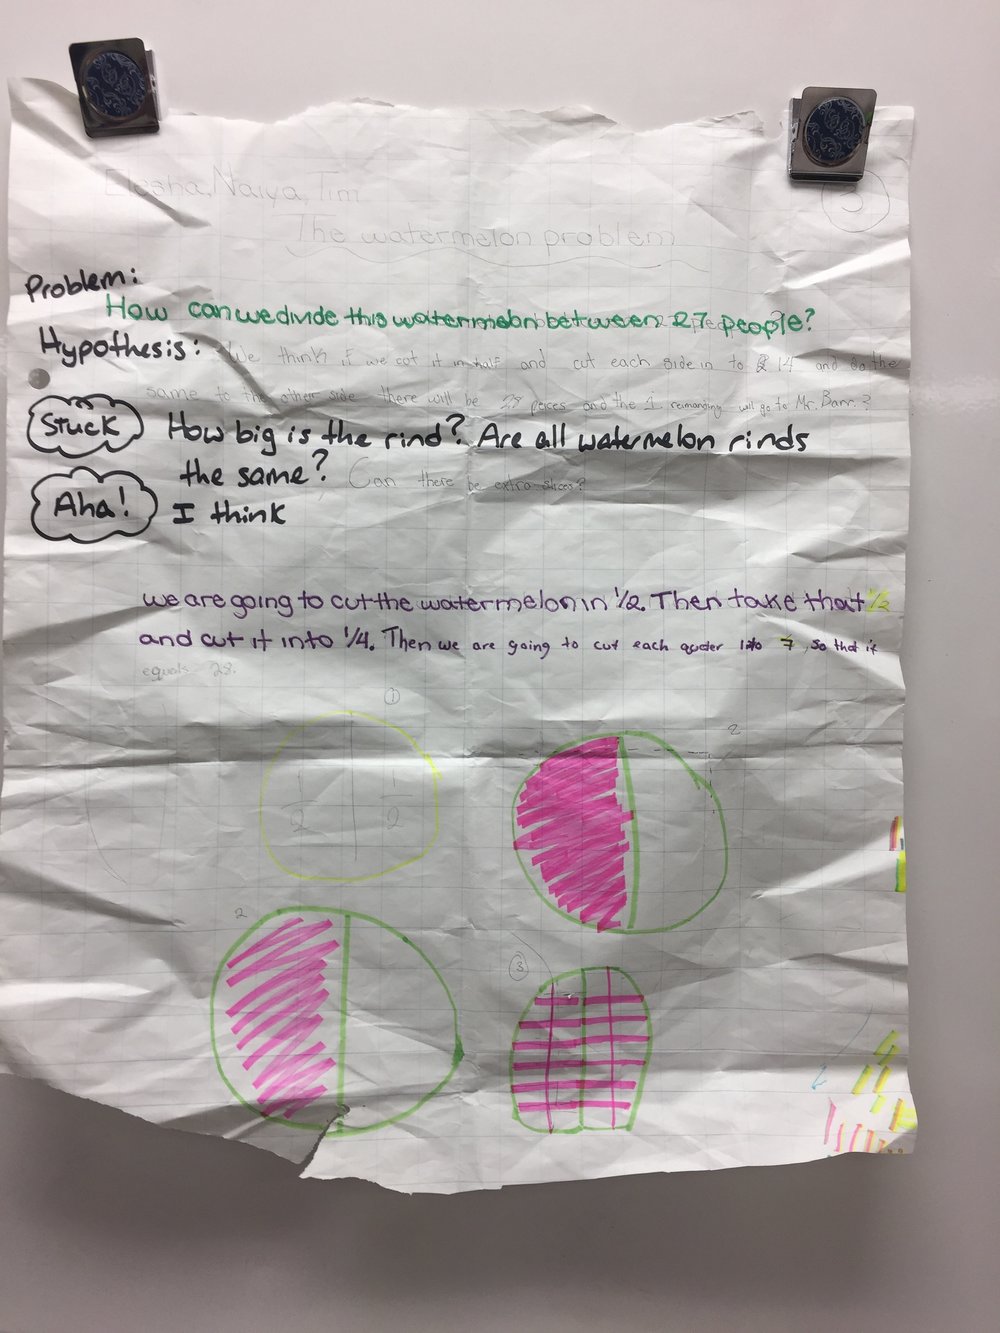 Elesha, Naiya, Tim
3
The watermelon problem
Problem:
How can we divide this watermelon between 27 people?
Hypothesis: We think if we cot it in half and cut each side in to 14 and do the
same to the other side there will be 28 peices and the 1 remanding will go to Mr. Barr.?
Stuck How big is the rind? Are all watermelon rinds
the same? Can there be extra slices?
Aha! I think
we are going to cut the watermelon in 1/2. Then take that 1/2
and cut it into 1/4. Then we are going to cut each quder into 7, so that it
equals 28.
1
2
1/2 1/2
2
3